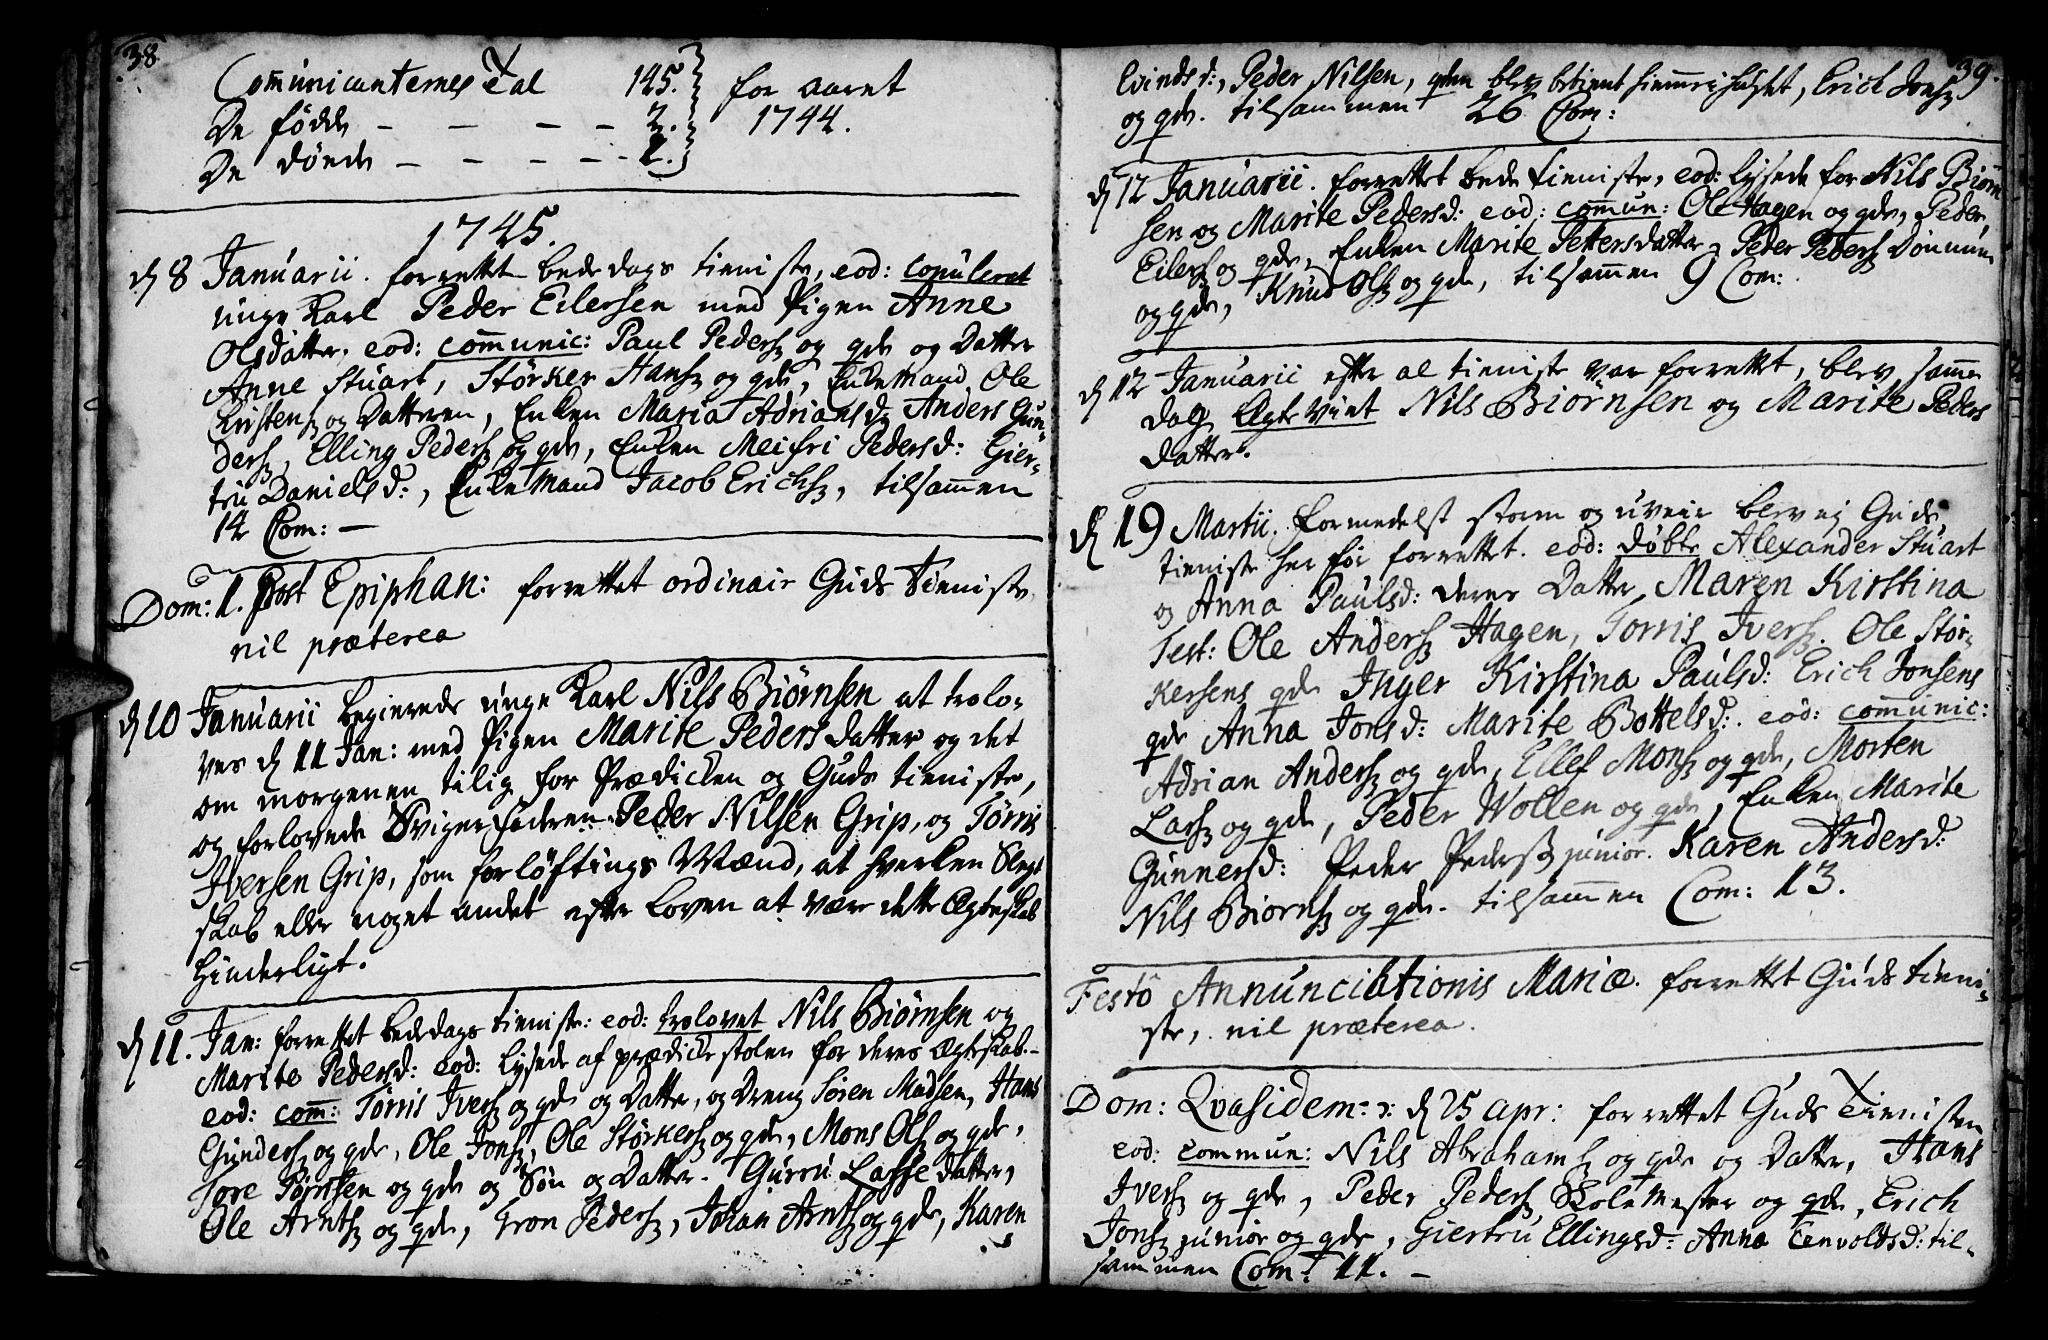 38.
Com̄unicanternes Tal 145. for aaret
De fødde - - - - 2. 1744.
De døede - - - - - 2.
1745.
d 8 Januarii. forrettet bededags tieniste, eod: copuleret
unge Karl Peder Eilersen med Pigen Anne
Olsdatter. eod: com̄unic: Paul Peders og qde og Datter
Anne Stuart, Størker Hans og qde, Enkemand Ole
Cristens og Datteren, Enken Maria Adriansd: Anders Gun-
ders, Elling Peders og qde, Enken Meifri Pedersd: Gier-
tru Danielsd:, Enkemand Jacob Erichs, tilsam̄en
14 Com: -
Dom: 1. Post Epiphan: forrettet ordinair Guds Tieniste,
nil præterea
d 10 Januarii begierede unge Karl Nils Biørnsen at trolo-
ves d 11 Jan: med Pigen Marite Pedersdatter og det
om morgenen tilig for Prædicken og Guds tieniste,
og forlovede Svigerfaderen Peder Nilsen Grip, og Tørris
Iversen Grip, som forløftings Mænd, at hverken Slegt
skab eller noget andet efter loven at være dette Ægteskab
Hinderligt.
d 11. Jan: forrettet bededags tieniste: eod: trolovet Nils Biørnsen og
Marite Pedersd: eod: lysede af prædickestolen for deres Ægteskab.-
eod: com̄: Tørris Ivers og qde og Datter, og Dreng Søren Madsen, Hans
Gunders og qde, Ole Jons, Ole Størkers og qde, Mons Ols og qde,
Tore Tørrisen og qde og Søn og Datter. Gurru Lassedatter,
Ole Arnts og qde, Tron Peders, Johan Arnts og qde, Karen
39.
Evindsd:, Peder Nilsen, qden blev betient hiem̄e i huset, Erich Jons
og qde. tilsammen 26 Com:
d 12 Januarii. forrettet bede tieniste, eod: lysede for Nils Biørn
sen og Marite Pedersd: eod: com̄un: Ole Hagen og qde, Peder
Eilers og qde, Enken Marite Pettersdatter, Peder Peders Døn̄um
og qde, Knud Ols og qde, tilsam̄en 9 Com:
d 12 Januarii efter al tieniste var forrettet, blev sam̄e
dag Ægteviet Nils Biørnsen og Marite Peders
datter.
d 19 Martii. formedelst storm og uveir blev ej Guds
tieniste her før forrettet. eod: døbte Alexander Stuart
og Anna Paulsd: deres Datter, Maren Kirstina
Test: Ole Anders Hagen, Torris Ivers. Ole Stør-
kersens qde Inger Kirstina Paulsd: Erich Jonsens
qde Anna Jonsd: Marite Bottelsd: eod: com̄unic:
Adrian Anders og qde, Ellef Mons og qde, Morten
Lars og qde, Peder Wollen og qde, Enken Marite
Gunnersd: Peder Peders junior. Karen Andersd:
Nils Biørns og qde. tilsam̄en Com: 13.
Festo Annunciationis Mariæ. forrettet Guds tieni-
ste, nil præterea.
Dom: Qvasidem: d 25 apr: forrettet Guds Tienisten
eod: commun: Nils Abrahams og qde og Datter, Hans
Ivers og qde, Peder Peders Skolemester og qde, Erich
Jons junior og qde, Giertru Ellingsd: Anna Eenvoldsd: til-
sammen Com: 11. -